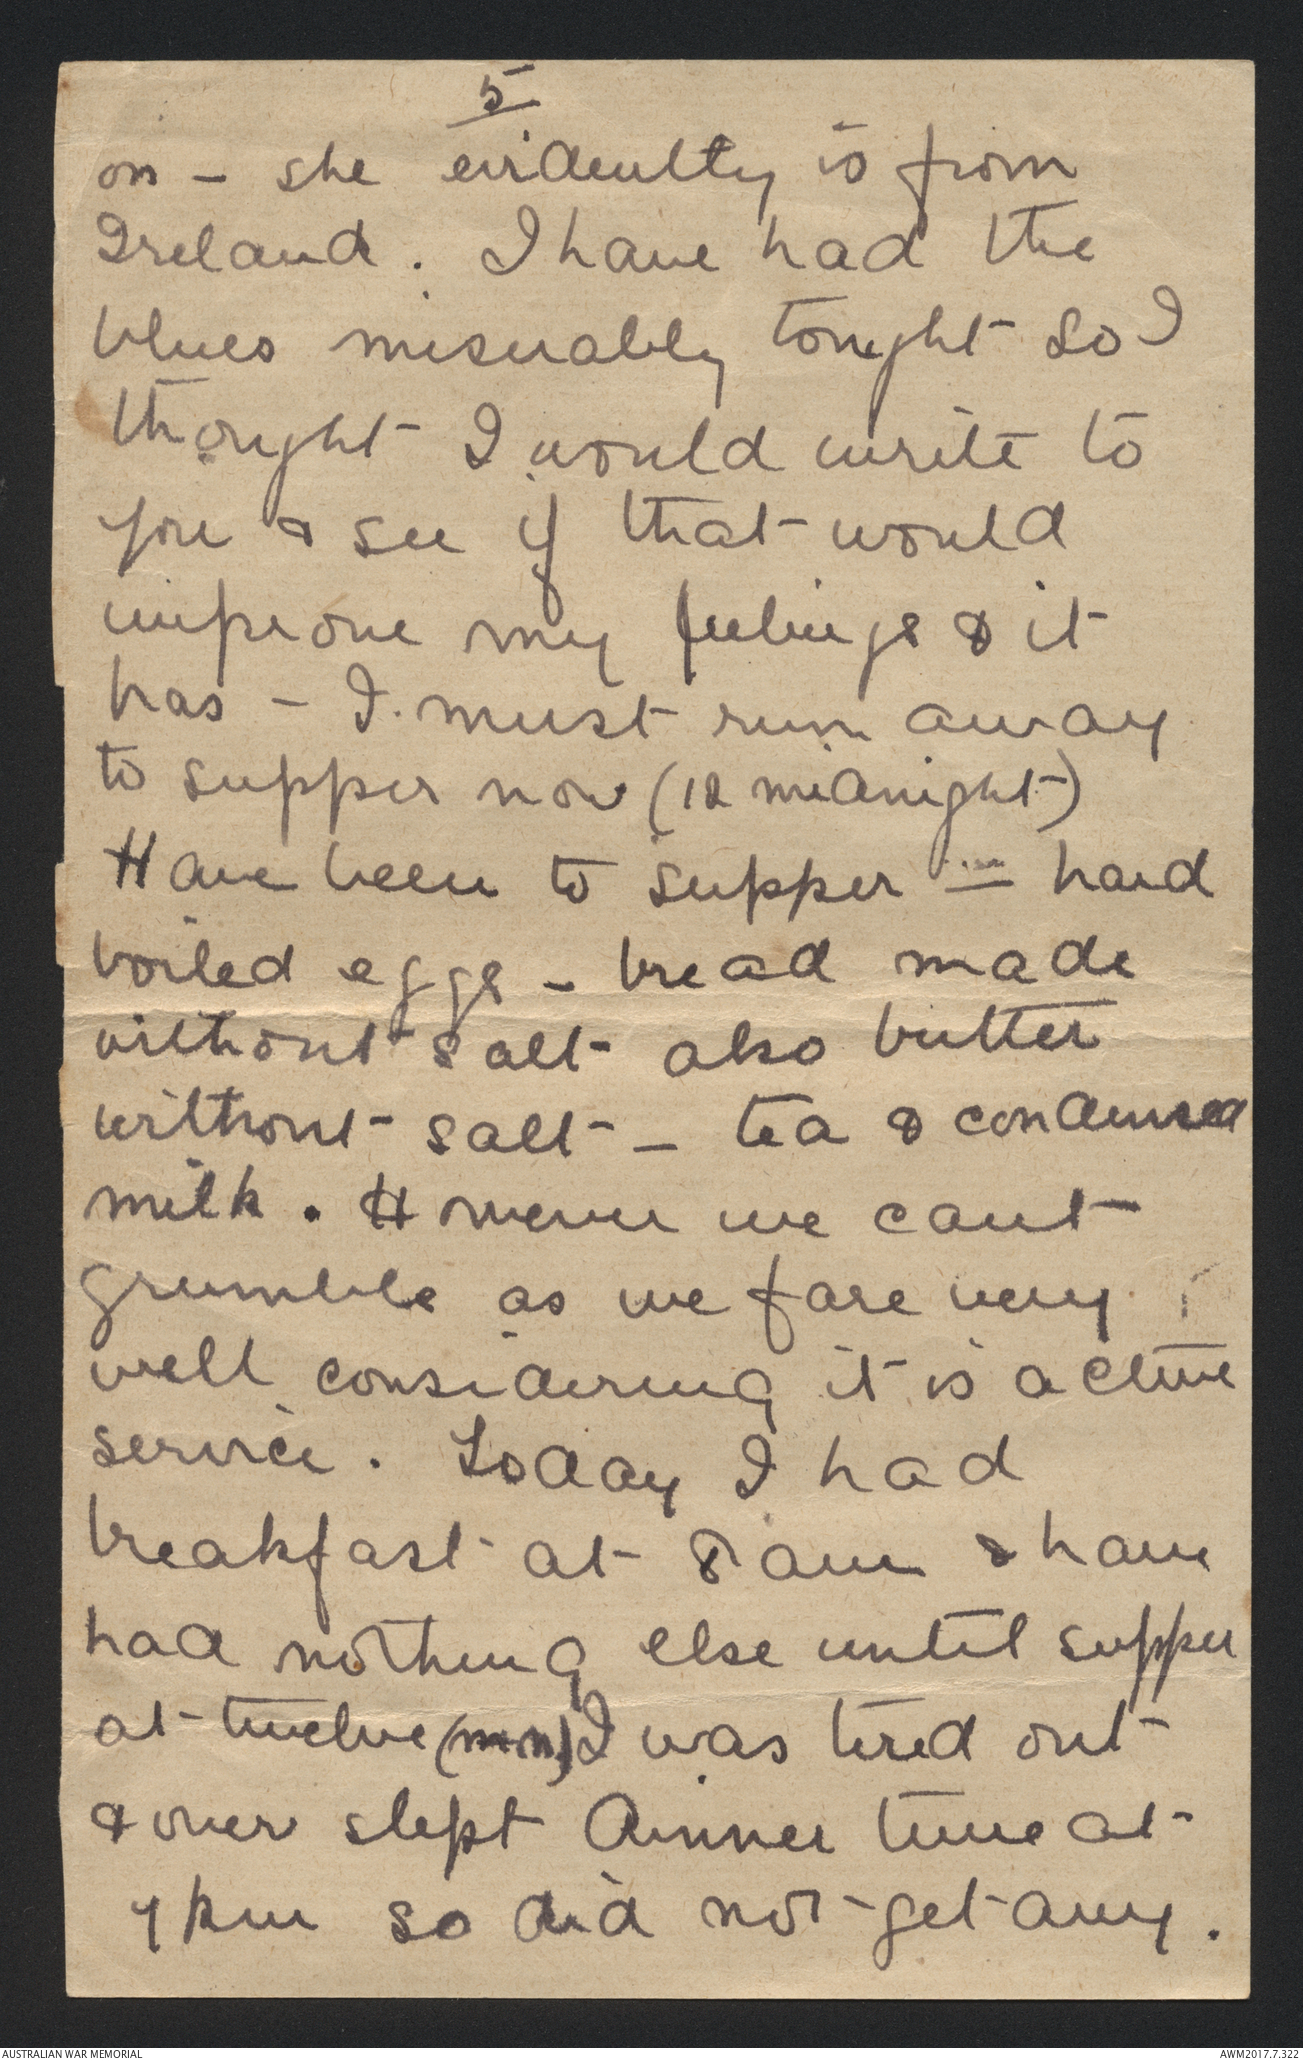 5
on - she evidently is from
Ireland. I have had the
blues miserably tonight so I
thought I would write to
you & see if that would
improve my feelings & it
has - I must run away
to supper now (12 midnight)
Have been to supper - hard
boiled eggs - bread made
without salt also butter
without salt - tea & condensed
milk. However we cant
grumble as we fare very
well considering it is active
service. Today I had
breakfast at 8 am & have
had nothing else until supper
at twelve (m.n.) I was tired out
& over slept dinner time at
7 pm so did not get any.
AUSTRALIAN WAR MEMORIAL
AWM2017.7.322